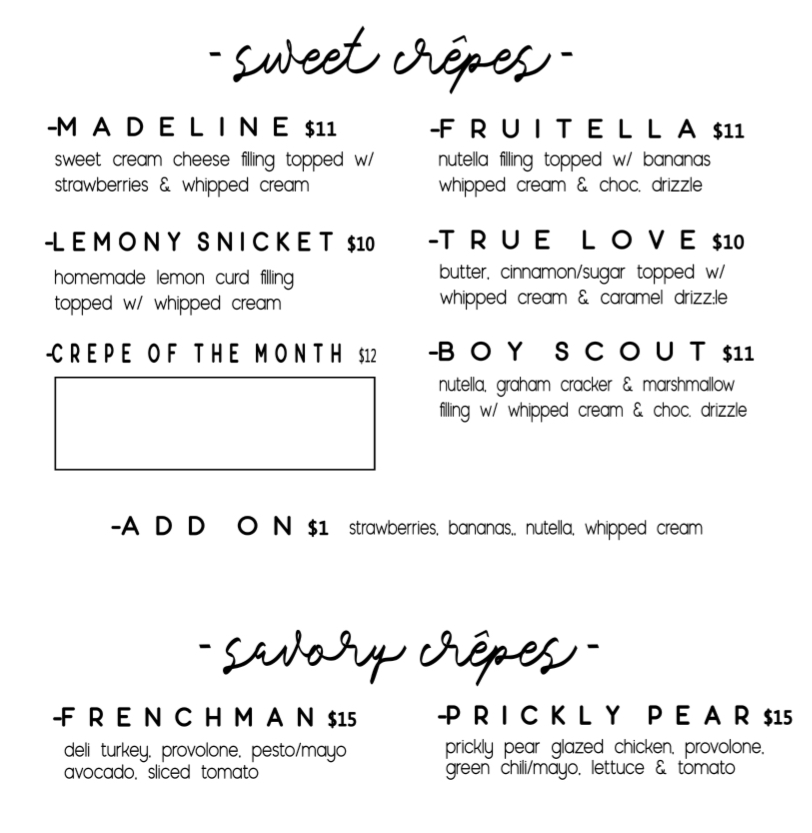 - sweet crêpes -
-MADELINE $11
sweet cream cheese filling topped w/
strawberries & whipped cream
-LEMONY SNICKET $10
homemade lemon curd filling
topped w/ whipped cream
-CREPE OF THE MONTH $12
-FRUITELLA $11
nutella filling topped w/ bananas
whipped cream & choc. drizzle
-TRUE LOVE $10
butter, cinnamon/sugar topped w/
whipped cream & caramel drizz:le
-BOY SCOUT $11
nutella, graham cracker & marshmallow
filling w/ whipped cream & choc. drizzle
-ADD ON $1 strawberries, bananas,. nutella, whipped cream
- savory crêpes -
-FRENCHMAN $15
deli turkey, provolone, pesto/mayo
avocado, sliced tomato
-PRICKLY PEAR $15
prickly pear glazed chicken, provolone,
green chili/mayo, lettuce & tomato